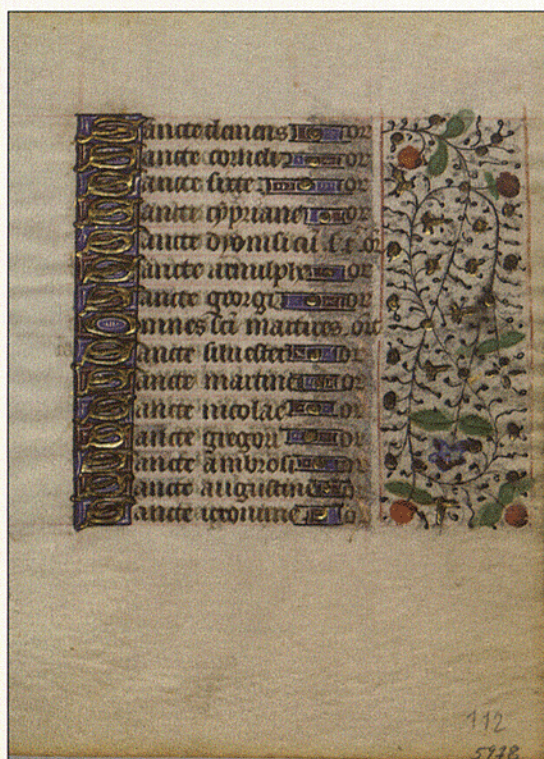 Sancte clemens or
Sancte corneli or
Sancte sixte or
Sancte cypriane or
Sancte dyonisi cū s. t. or
Sancte arnulphe or
Sancte georgi or
Omnes sci martires. ort
Sancte siluester or
Sancte martine or
Sancte nicolae or
Sancte gregori or
Sancte ambrosi or
Sancte augustine or
Sancte ieronime or
112
5978